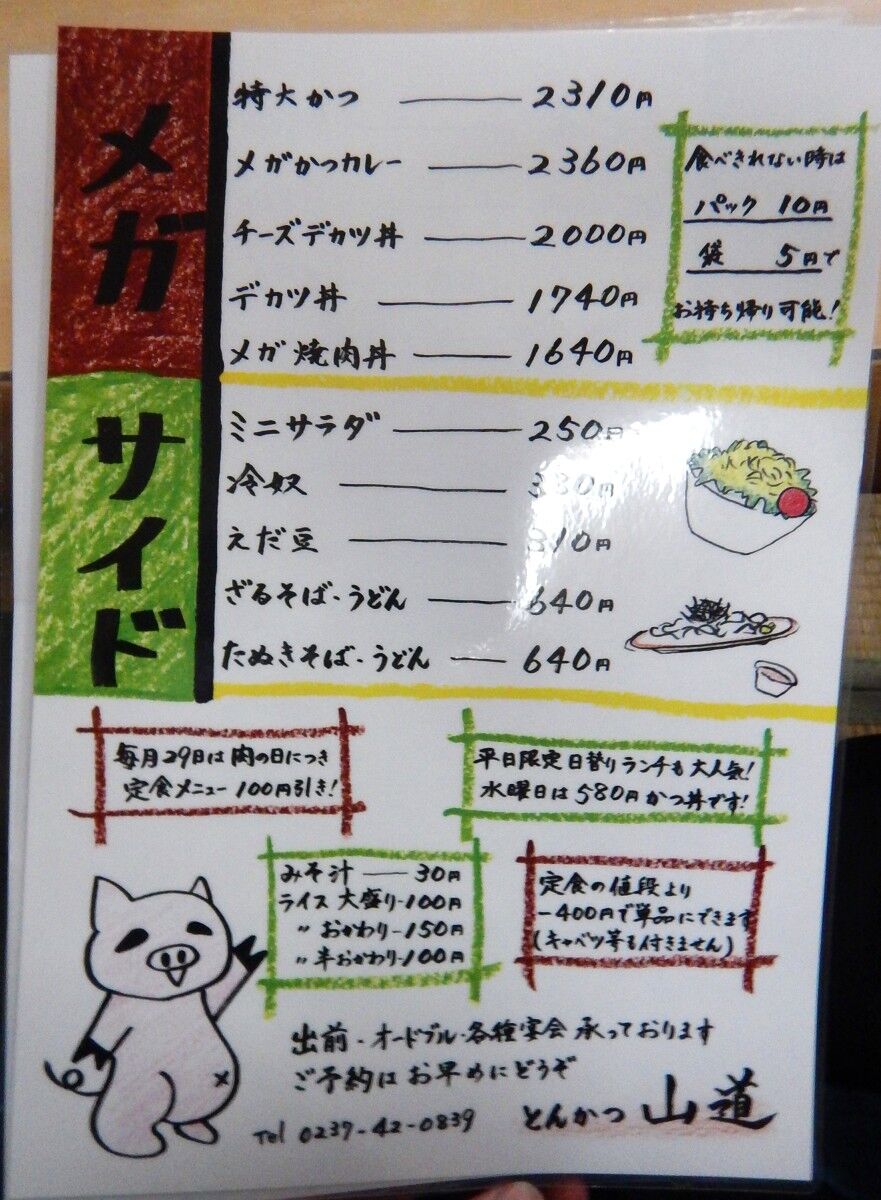 メガ
特大かつ 2310円
メガかつカレー 2360円
チーズデカツ丼 2000円
デカツ丼 1740円
メガ焼肉丼 1640円
食べきれない時は
パック 10円
袋 5円で
お持ち帰り可能!
サイド
ミニサラダ 250円
冷奴 330円
えだ豆 310円
ざるそば・うどん 640円
たぬきそば・うどん 640円
毎月29日は肉の日につき
定食メニュー100円引き!
平日限定日替りランチも大人気!
水曜日は580円かつ丼です!
みそ汁 30円
ライス大盛り-100円
〃おかわり-150円
〃半おかわり-100円
定食の値段より
-400円で単品にできます
(キャベツ等も付きません)
出前・オードブル・各種宴会承っております
ご予約はお早めにどうぞ
Tel 0237-42-0839
とんかつ 山道